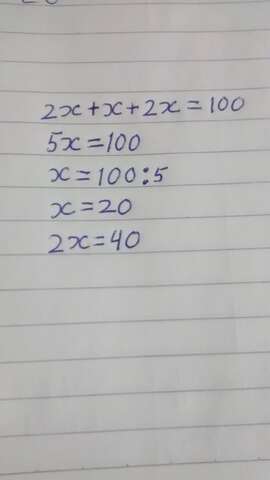 2x+x+2x=100
5x=100
x=100:5
x=20
2x=40